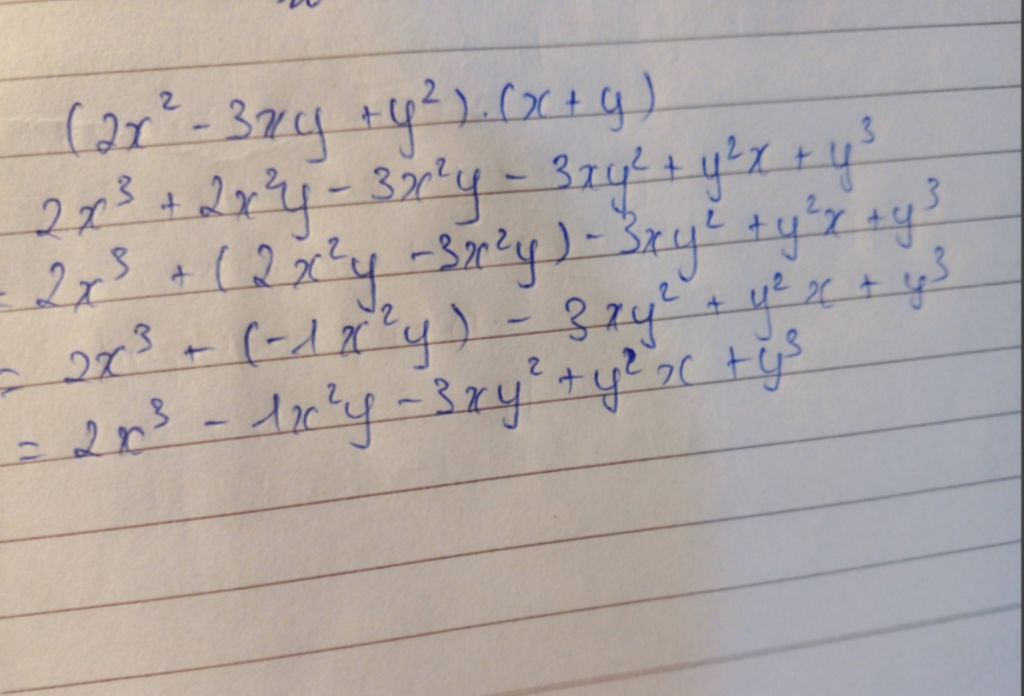 (2x² - 3xy + y²).(x + y)
2x³ + 2x²y - 3x²y - 3xy² + y²x + y³
= 2x³ + (2x²y - 3x²y) - 3xy² + y²x + y³
= 2x³ + (-1x²y) - 3xy² + y²x + y³
= 2x³ - 1x²y - 3xy² + y²x + y³